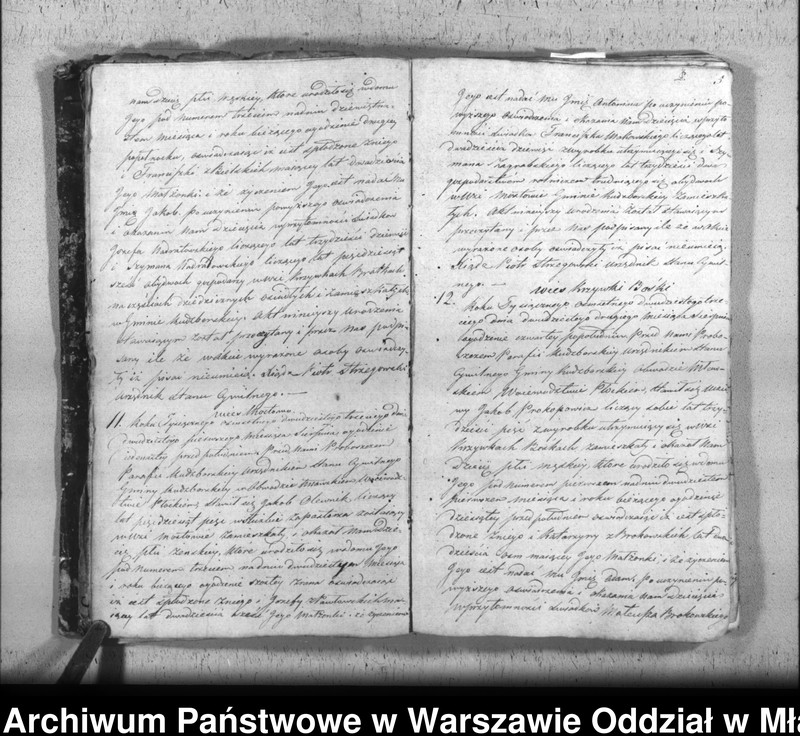 nam dziecię płci męzkiey, które urodziło się w domu
Jego pod Numerem trzecim na dniu dziewiętna-
stym Miesiąca i roku bieżącego o godzinie drugiey
popołudniu, oswiadczaiąc iż iest spłodzone z niego
i Franciszki z maiącey lat dwadzieścia
Jego Małżonki i że życzeniem Jego iest nadać Mu
Imię Jakob, po uczynieniu powyższego oswiadczenia
i okazaniu Nam dziecięcia w przytomności świadków
Józefa liczącego lat trzydzieści dziewięć
i Szymona liczącego lat pięćdziesiąt
obydwóch w wsi Krzywkach Bratkach
na częściach dziedzicznych osiadłych i zamieszkałych
w Gminie Kudzborskiey. Akt niniejszy urodzenia
stawaiącym został przeczytany i przez Nas podpi-
sany ile że wszkie wyrażone osoby oswiadczy-
ły iż pisać nieumieią. Xiądz Piotr Strzegowski
Urzędnik Stanu Cywilnego. —
wieś
11. Roku Tysiącznego ośmsetnego dwudziestego trzeciego dnia
dwudziestego pierwszego Miesiąca Sierpnia, o godzinie
przed południem Przed Nami Proboszczem
Parafii Kudzborskiey Urzędnikiem Stanu Cywilnego
Gminy Kudzborskiey w Obwodzie Mławskim w Wojewódz-
twie Płockim, stawił się Jakob Olewnik liczący
lat pięćdziesiąt pięć
w wsi zamieszkały i okazał Nam dzie-
cię płci żenskiey, które urodziło się w domu Jego
pod Numerem trzecim na dniu dwudziestym Miesiąca
i roku bieżącego o godzinie szóstey z rana oswiadczaiąc
iż iest spłodzone z niego i Józefy maią-
cey lat dwadzieścia Jego Małżonki i iż życzeniem
Jego iest nadać Mu Imię Antonina po uczynieniu po-
wyższego oswiadczenia i okazania Nam dziecięcia w przyto-
mności świadków Franciszka liczącego lat
dwadzieścia dziewięć z wyrobku utrzymuiącego się i Szy-
mona Zagrabskiego liczącego lat trzydzieści dwa
gospodarstwem rolniczem trudniącego się obydwóch
w wsi Gminie Kudzborskiey Zamieszka-
łych. Akt niniejszy urodzenia został stawaiącym
przeczytany i przez Nas podpisany ile że wszkie
wyrażone osoby oswiadczyły iż pisać nieumieią.
Xiądz Piotr Strzegowski urzędnik Stanu Cywil-
nego. —
wieś Krzywki Bośki
12. Roku Tysiącznego ośmsetnego dwudziestego trze-
ciego dnia dwudziestego drugiego Miesiąca Sierpnia
o godzinie czwartey popołudniu Przed Nami Probo-
szczem Parafii Kudzborskiey Urzędnikiem Stanu
Cywilnego Gminy Kudzborskiey Obwodzie Mław-
skiem Województwie Płockiem, stawił się Uczci-
wy Jakob Prokopowicz liczący sobie lat trzy-
dzieści pięć z wyrobku utrzymuiący się w wsi
Krzywkach Boskach zamieszkały i okazał Nam
dziecię płci męzkiey które urodziło się w domu
Jego pod Numerem pierwszem na dniu dwudziestem
pierwszem miesiąca i roku bieżącego o godzinie
dziesiątey przed południem oswiadczaiąc iż iest spło-
dzone z niego i Katarzyny z Brokowskich, lat dwa-
dzieścia osm maiącey Jego Małżonki i iż życzeniem
Jego iest nadać Mu Imię Adam, po uczynieniu po-
wyższego oswiadczenia i okazania Nam dziecięcia
w przytomności świadków Mateusza Brokowskiego
Archiwum Państwowe w Warszawie Oddział w Mła